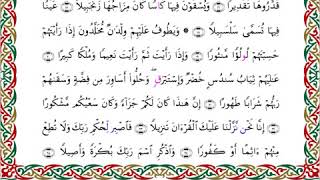 قَدَّرُوهَا تَقْدِيرًا ۝ وَيُسْقَوْنَ فِيهَا كَأْسًا كَانَ مِزَاجُهَا زَنجَبِيلًا ۝ عَيْنًا
فِيهَا تُسَمَّىٰ سَلْسَبِيلًا ۝ ۞ وَيَطُوفُ عَلَيْهِمْ وِلْدَٰنٌ مُّخَلَّدُونَ إِذَا رَأَيْتَهُمْ
حَسِبْتَهُمْ لُؤْلُؤًا مَّنثُورًا ۝ وَإِذَا رَأَيْتَ ثَمَّ رَأَيْتَ نَعِيمًا وَمُلْكًا كَبِيرًا ۝
عَٰلِيَهُمْ ثِيَابُ سُندُسٍ خُضْرٌ وَإِسْتَبْرَقٌ ۖ وَحُلُّوٓا۟ أَسَاوِرَ مِن فِضَّةٍ وَسَقَىٰهُمْ
رَبُّهُمْ شَرَابًا طَهُورًا ۝ إِنَّ هَٰذَا كَانَ لَكُمْ جَزَآءً وَكَانَ سَعْيُكُم مَّشْكُورًا
۝ إِنَّا نَحْنُ نَزَّلْنَا عَلَيْكَ ٱلْقُرْءَانَ تَنزِيلًا ۝ فَٱصْبِرْ لِحُكْمِ رَبِّكَ وَلَا تُطِعْ
مِنْهُمْ ءَاثِمًا أَوْ كَفُورًا ۝ وَٱذْكُرِ ٱسْمَ رَبِّكَ بُكْرَةً وَأَصِيلًا ۝